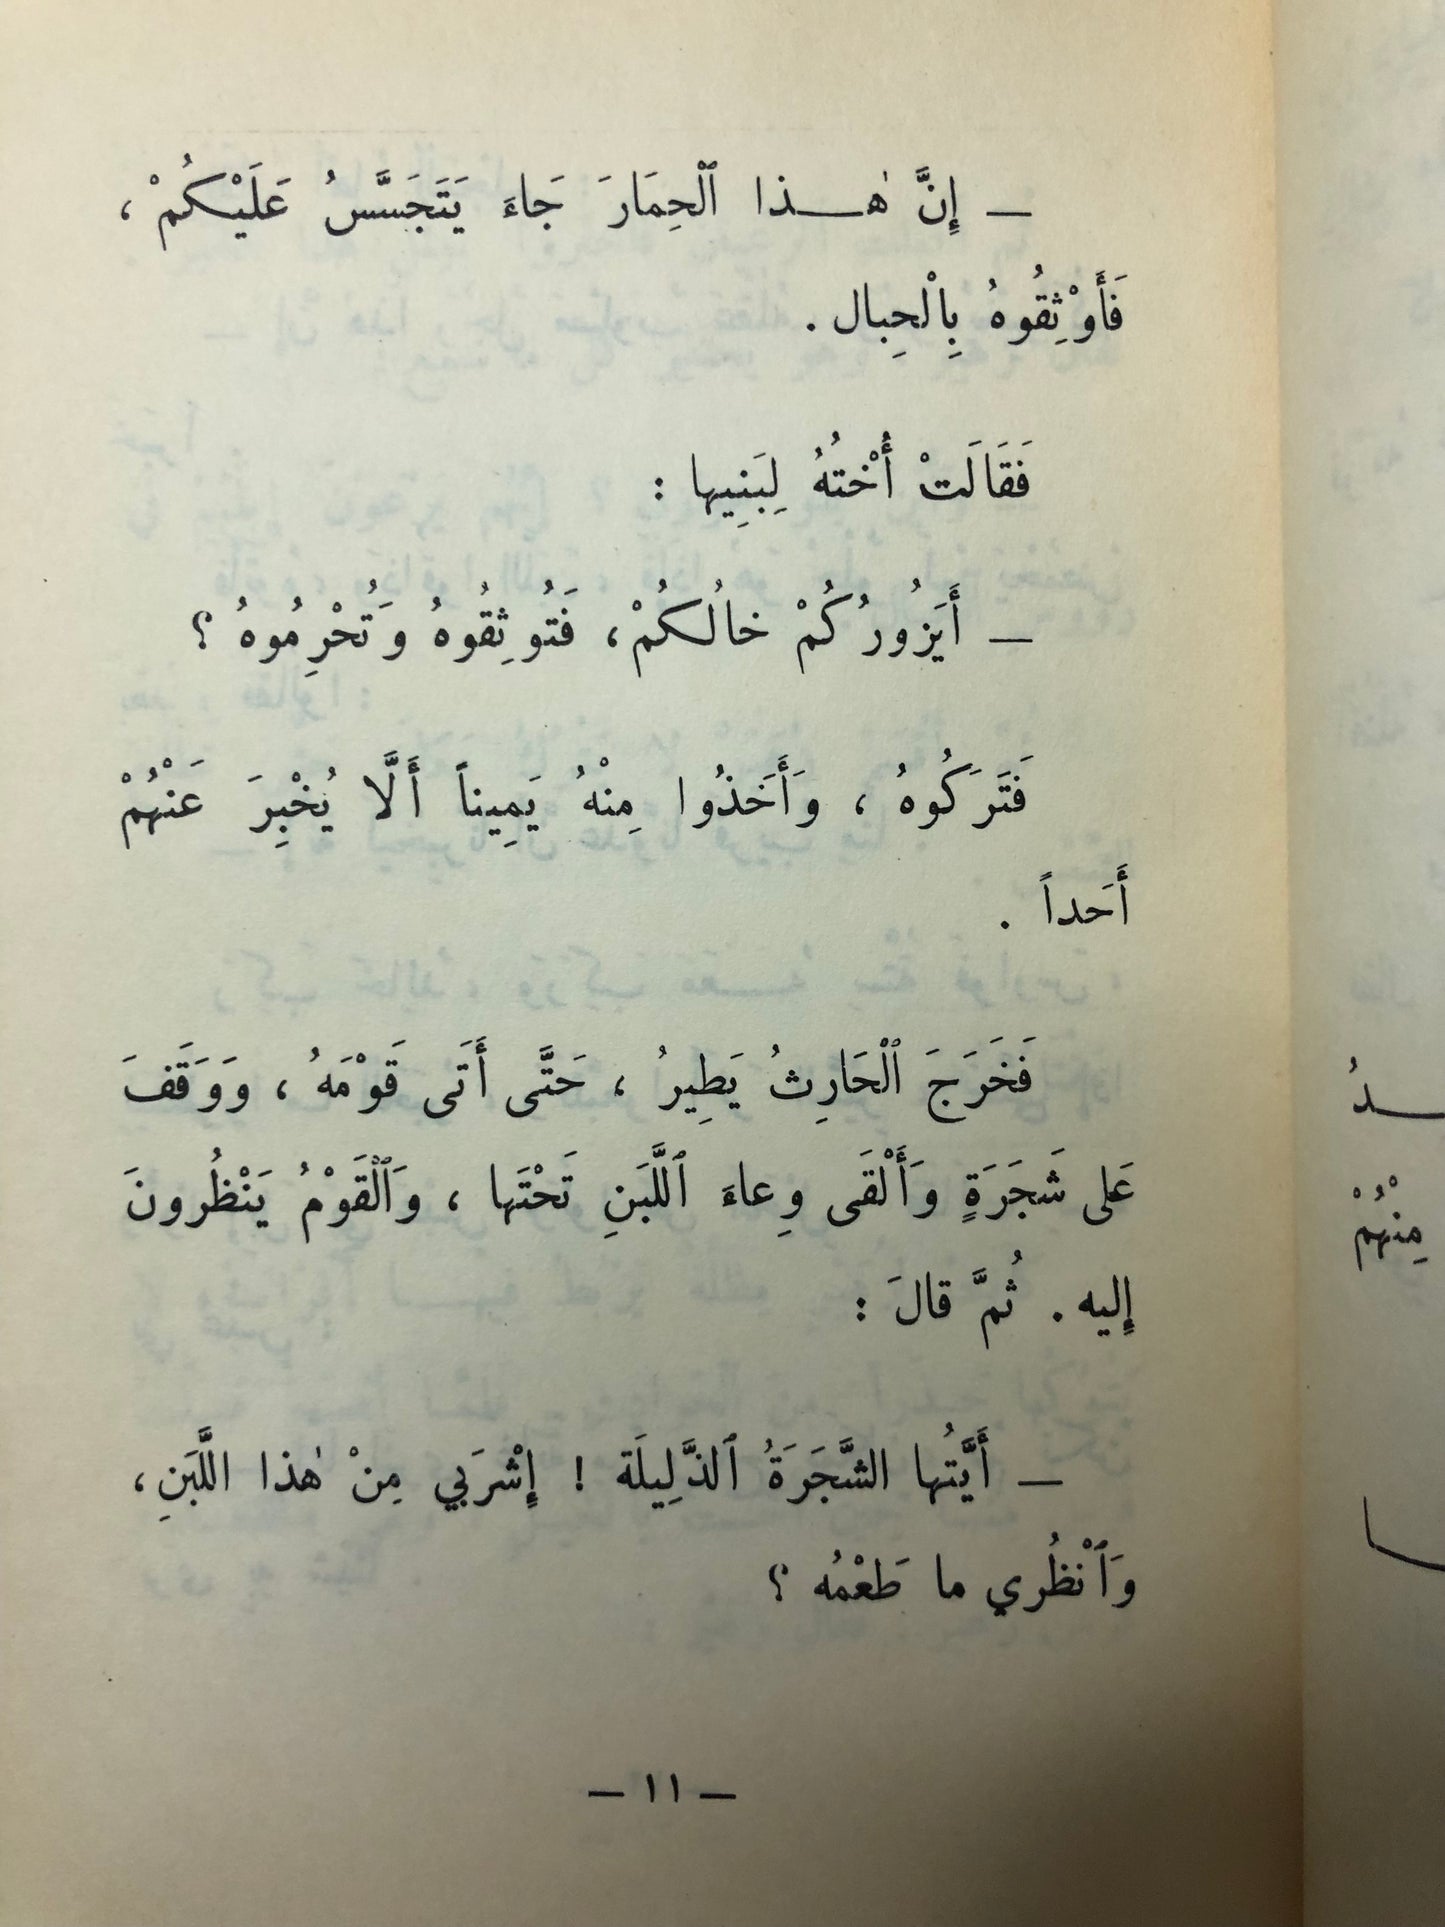 — إِنَّ هٰـــذا ٱلْحِمَارَ جَاءَ يَتَجَسَّسُ عَلَيْكُمْ ،
فَأَوْثِقُوهُ بِالْحِبال .
فَقَالَتْ أُخْتُهُ لِبَنِيها :
— أَيَزُورُكُمْ خالُكُمْ، فَتُوثِقُوهُ وَتُحْرِمُوهُ ؟
فَتَرَكُوهُ ، وَأَخَذُوا مِنْهُ يَمِيناً أَلَّا يُخْبِرَ عَنْهُمْ
أَحَداً .
فَخَرَجَ ٱلْحَارِثُ يَطِيرُ ، حَتَّى أَتَى قَوْمَهُ ، وَوَقَفَ
عَلى شَجَرَةٍ وَأَلْقَى وِعاءَ ٱللَّبَنِ تَحْتَها ، وَٱلْقَوْمُ يَنْظُرونَ
إِليه . ثُمَّ قالَ :
— أَيَّتُها الشَّجَرَةُ ٱلذَّلِيلَة ! إِشْرَبي مِنْ هٰذا اللَّبَنِ ،
وَٱنْظُري ما طَعْمُه ؟
— ١١ —
مِنْهُمْ